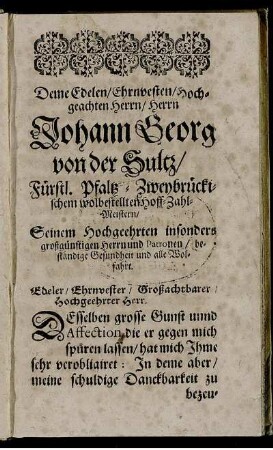 Deme Edelen/Ehrnvesten/Hoch-
geachten Herrn/Herrn
Johann Georg
von der Sultz/
Fürstl. Pfaltz-Zweybrücki-
schem wolbestelltem Hoff-Zahl-
Meistern/
Seinem Hochgeehrten insonders
großgünstigen Herrn und Patronen/be-
ständige Gesundheit und alle Wol-
fahrt.
Edeler/Ehrnvester/Großachtbarer/
Hochgeehrter Herr.
DEsselben grosse Gunst unnd
Affection, die er gegen mich
spüren lassen/hat mich Ihme
sehr verobliairet: In deme aber/
meine schuldige Danckbarkeit zu
bezeu-